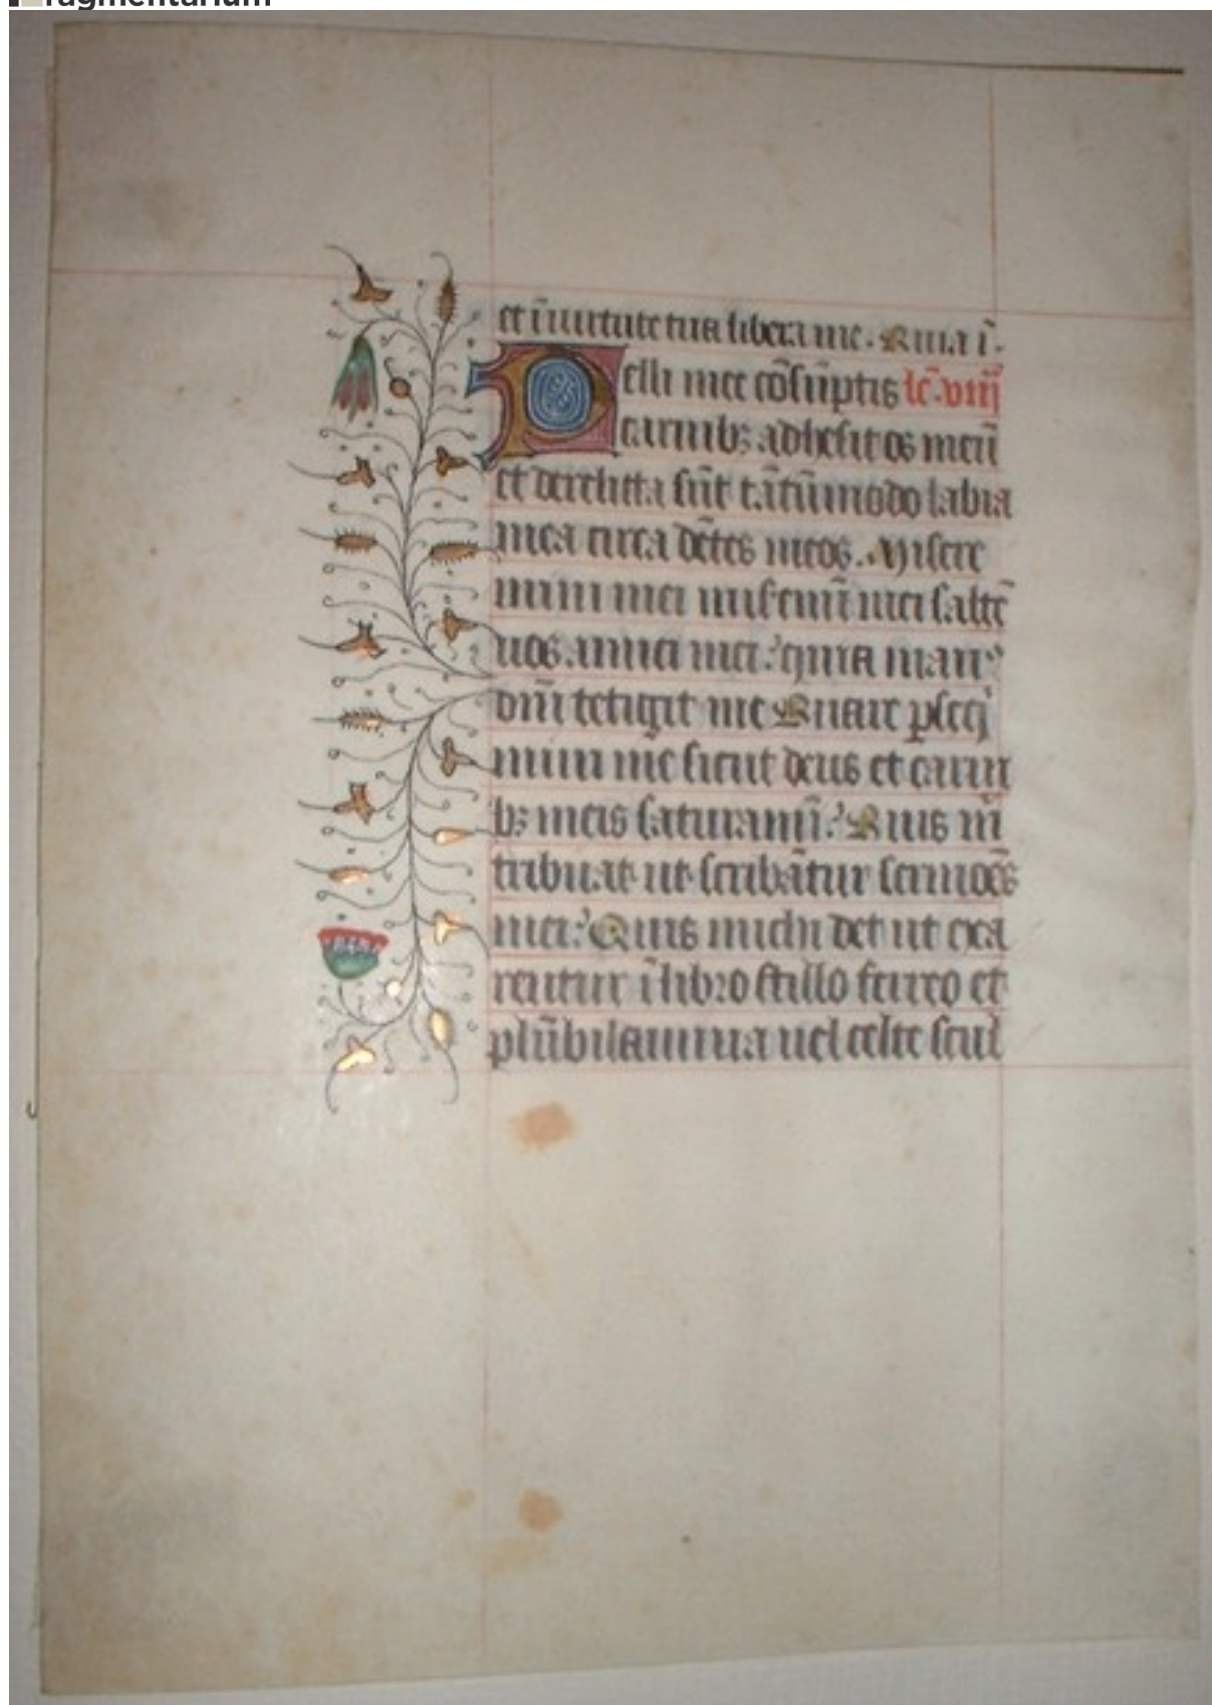 fragmentarium
et ī uirtute tua libera me. Quia ī.
Pelli mee cōsūptis lc̄. viii
carnibꝫ adhesit os meū
et derelicta sūt tātūmodo labia
mea circa dētes meos. Misere
mini mei miseminī mei saltē
uos amici mei: quia manꝰ
dn̄i tetigit me Quare ꝑseq̄
mini me sicut deus et carni
bꝫ meis saturaminī: Quis m̄
tribuat ut scribātur sermōes
mei: Quis michi det ut exa
rentur ī libro stillo ferreo et
plūbi lamina uel celte scul